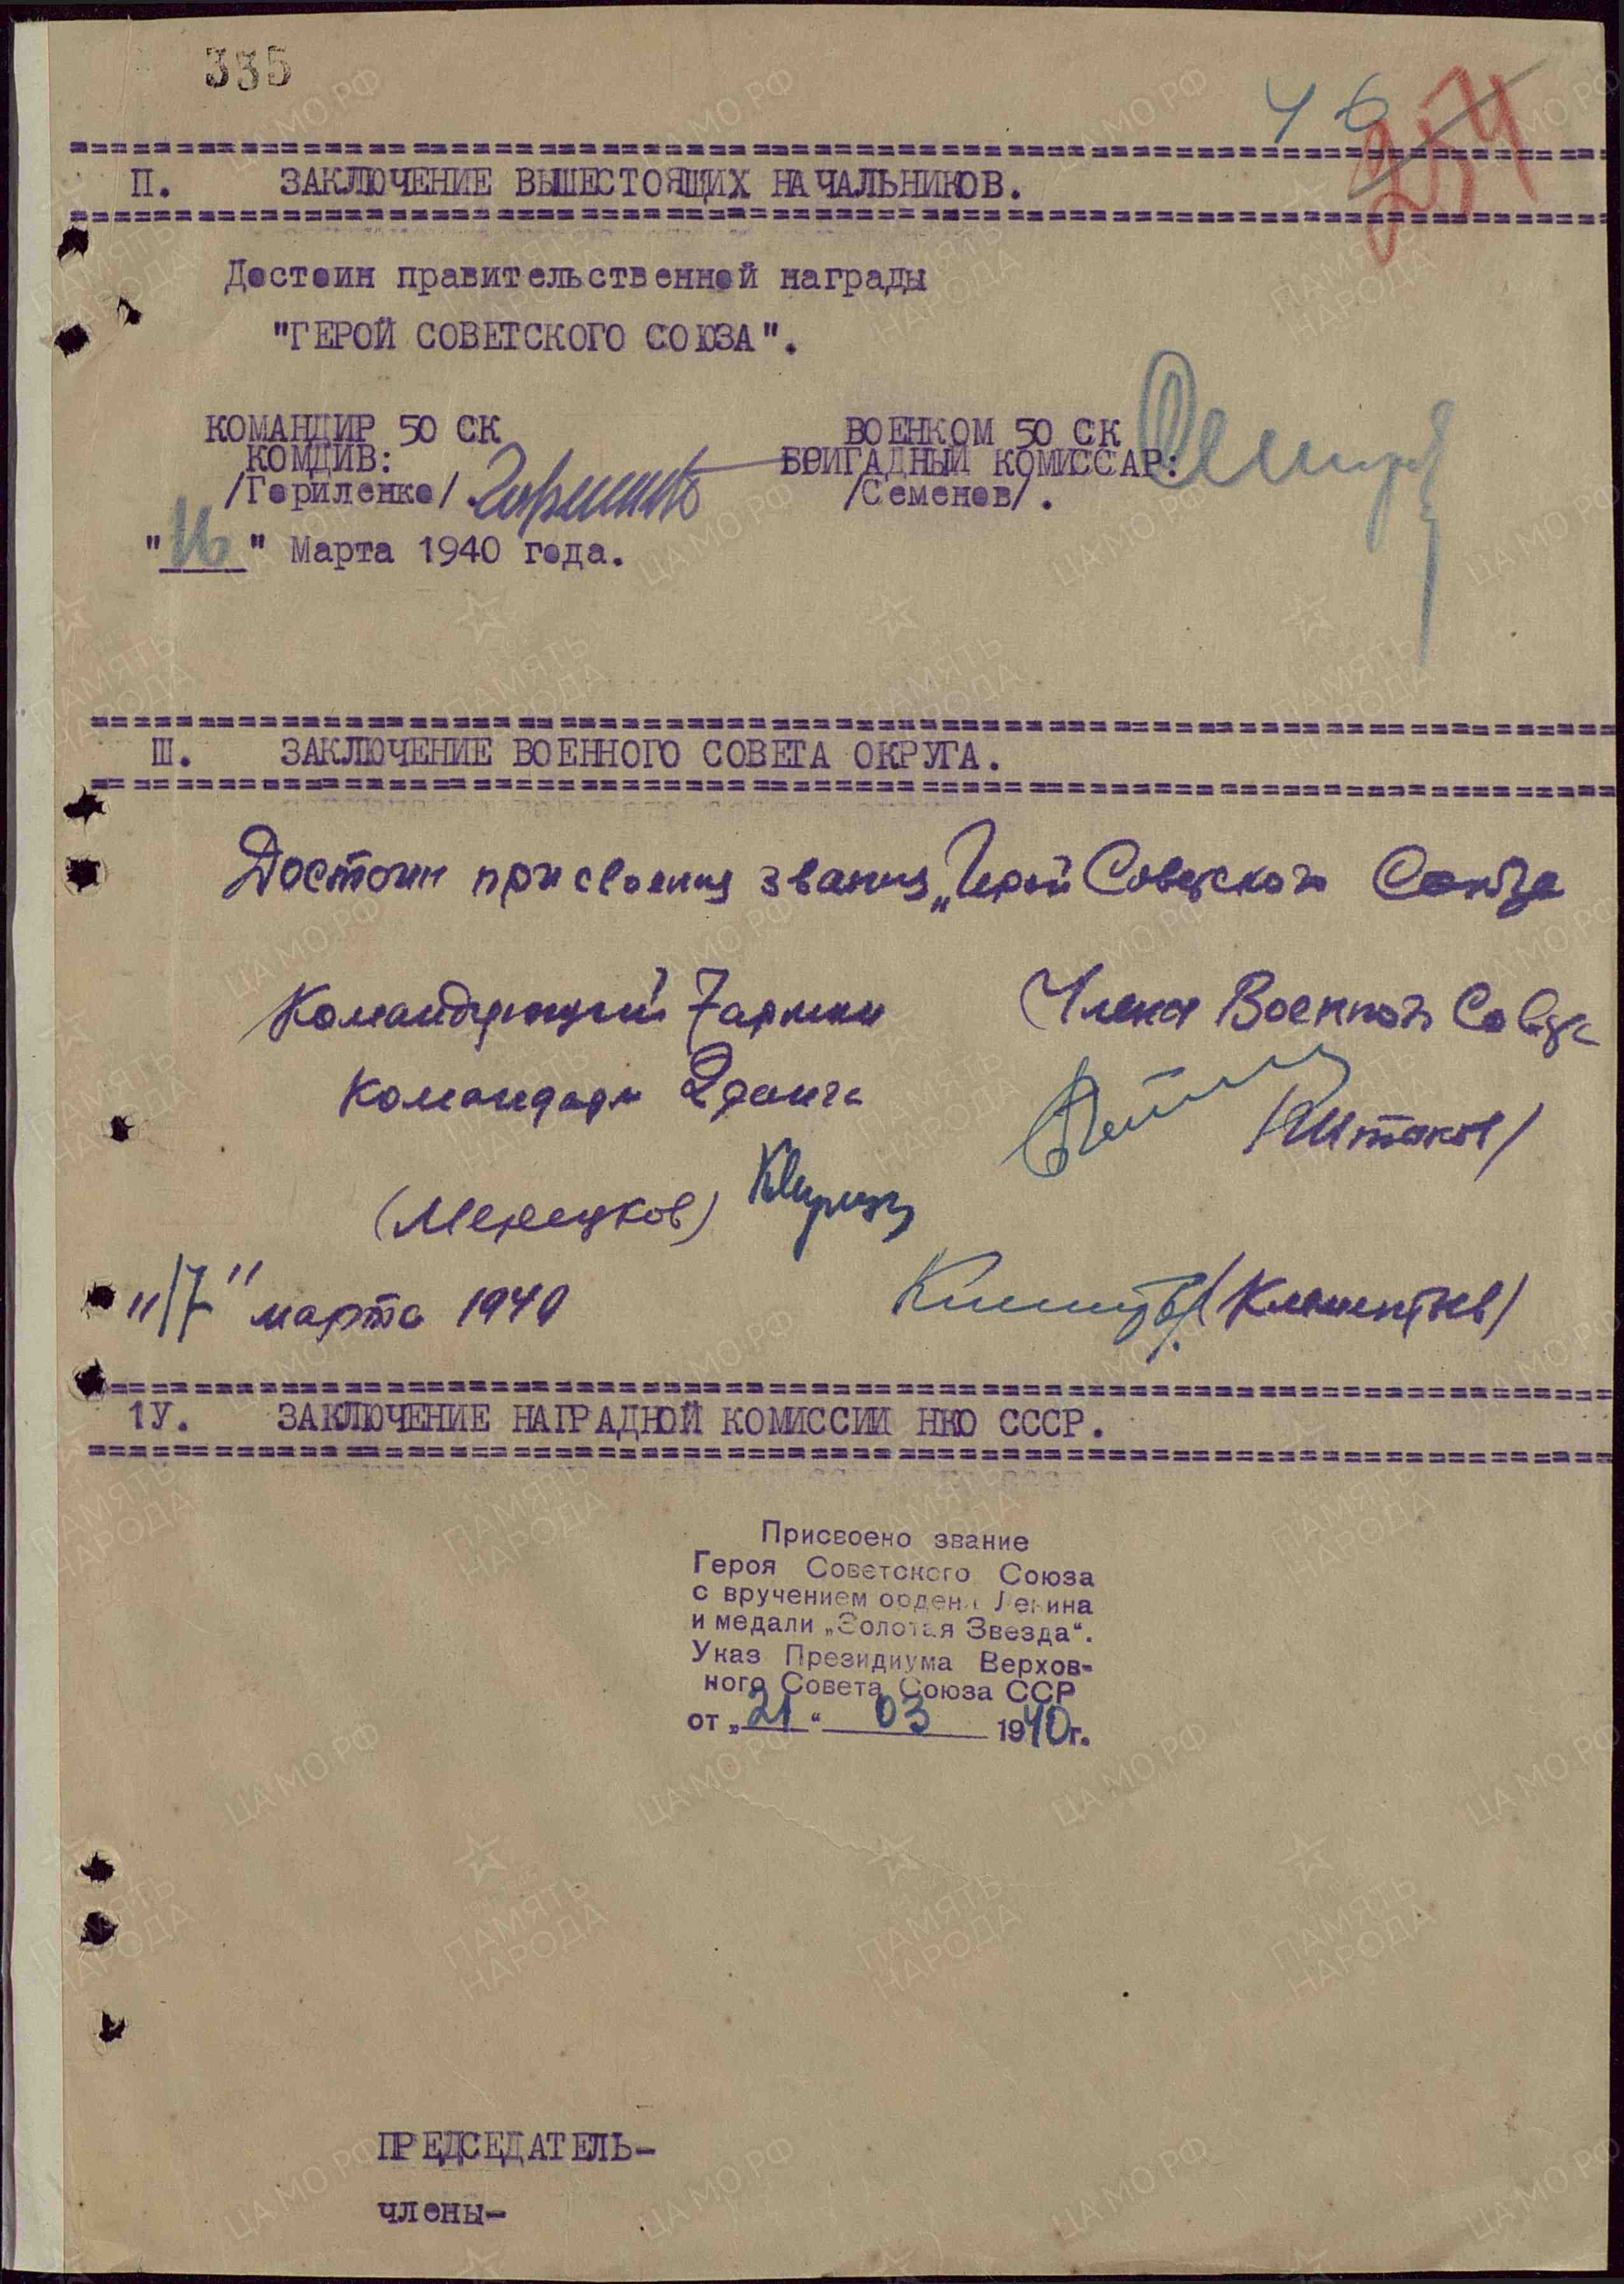 335
46
254
П. ЗАКЛЮЧЕНИЕ ВЫШЕСТОЯЩИХ НАЧАЛЬНИКОВ.
Достоин правительственной награды
"ГЕРОЙ СОВЕТСКОГО СОЮЗА".
КОМАНДИР 50 СК ВОЕНКОМ 50 СК
КОМДИВ: БРИГАДНЫЙ КОМИССАР:
/Гориленко/. /Семенов/.
"16" Марта 1940 года.
Ш. ЗАКЛЮЧЕНИЕ ВОЕННОГО СОВЕТА ОКРУГА.
Достоин присвоения звания „Герой Советского Союза
Командующий 7 армии Члены Военного Совета
Командарм 2 ранга
/Штыков/
(Мерецков)
"17" марта 1940 /Клементьев/
1У. ЗАКЛЮЧЕНИЕ НАГРАДНОЙ КОМИССИИ НКО СССР.
Присвоено звание
Героя Советского Союза
с вручением ордена Ленина
и медали „Золотая Звезда“.
Указ Президиума Верхов-
ного Совета Союза ССР
от „21“ 03 1940г.
ПРЕДСЕДАТЕЛЬ-
члены-